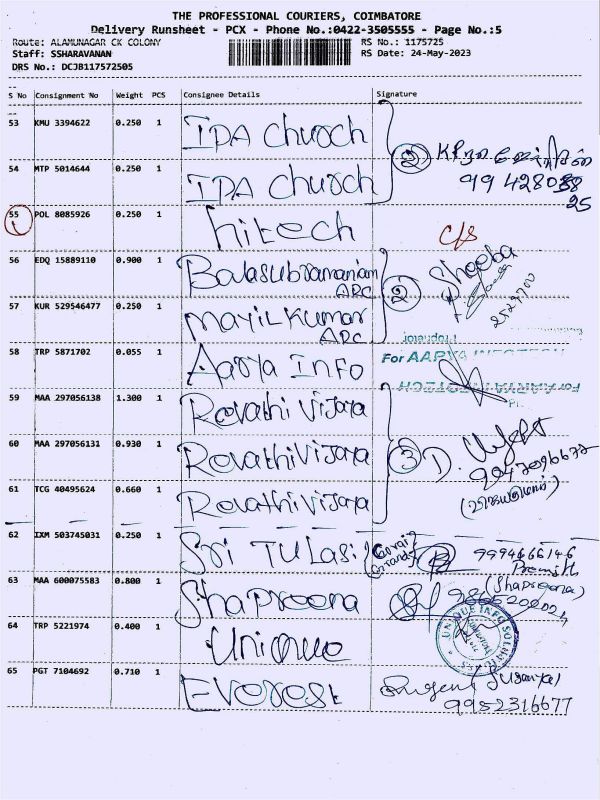 THE PROFESSIONAL COURIERS, COIMBATORE
Delivery Runsheet - PCX - Phone No.:0422-3505555 - Page No.:5
Route: ALAMUNAGAR CK COLONY RS No.: 1175725
Staff: SSHARAVANAN RS Date: 24-May-2023
DRS No.: DCJB117572505
S No Consignment No Weight PCS Consignee Details Signature
53 KMU 3394622 0.250 1 IPA Church
54 MTP 5014644 0.250 1 IPA Church 2
55 POL 8085926 0.250 1 hitech C/S
56 EDQ 15889110 0.900 1 Balasubramaniam ARC Sheeba
57 KUR 529546477 0.250 1 Mayilkumar ARC 2
58 TRP 5871702 0.055 1 Aarya Info For AARYA INFOTECH
59 MAA 297056138 1.300 1 Revathi Vijaya
60 MAA 297056131 0.930 1 Revathi Vijaya 3 D.
61 TCG 40495624 0.660 1 Revathi Vijaya
62 IXM 503745031 0.250 1 Sri Tulasi 9994666146
63 MAA 600075583 0.800 1 Shapreena (Shapreena)
64 TRP 5221974 0.400 1 Unique
65 PGT 7104692 0.710 1 Everest 9952316677